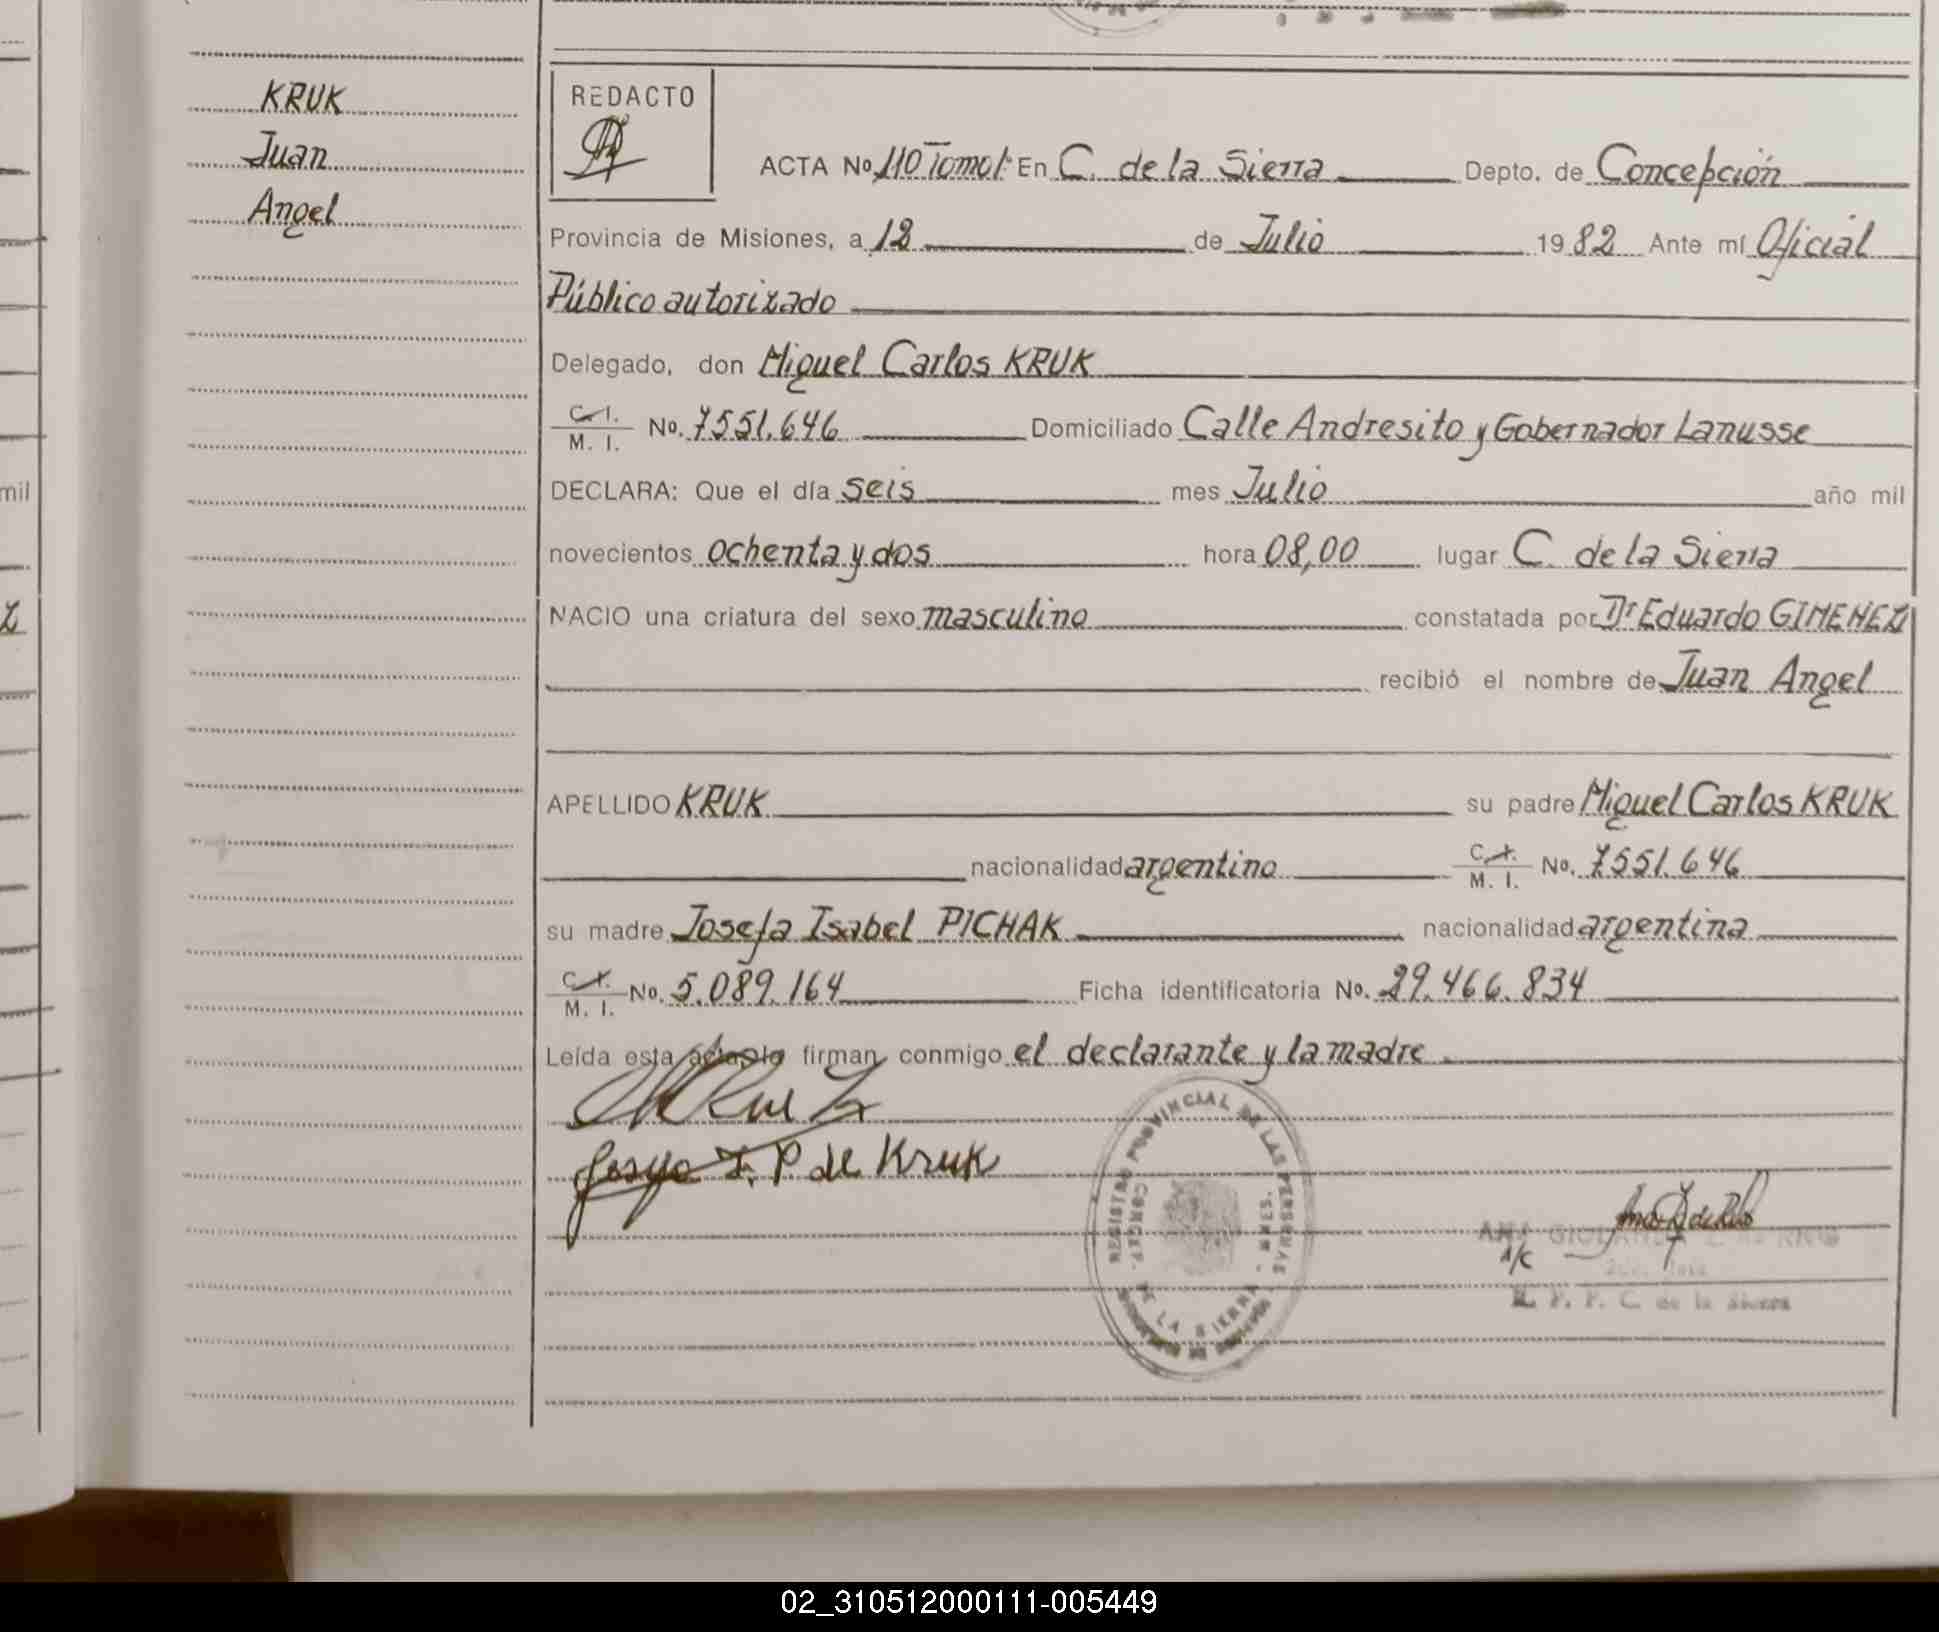 KRUK
Juan
Angel
REDACTO
ACTA No. 110 Tomo 1: En C. de la Sierra Depto. de Concepción
Provincia de Misiones, a 12 de Julio 1982 Ante mí Oficial
Público autorizado
Delegado, don Miguel Carlos KRUK
C. I.
M. I. No. 7551.646 Domiciliado Calle Andresito y Gobernador Lanusse
DECLARA: Que el día seis mes Julio año mil
novecientos ochenta y dos hora 08,00 lugar C. de la Sierra
NACIO una criatura del sexo masculino constatada por Dr Eduardo GIMENEZ
recibió el nombre de Juan Angel
APELLIDO KRUK su padre Miguel Carlos KRUK
nacionalidad argentino C. I. M. I. No. 7551.646
su madre Josefa Isabel PICHAK nacionalidad argentina
C. I.
M. I. No. 5.089.164 Ficha identificatoria No. 29.466.834
Leída esta acta, la firman conmigo el declarante y la madre.
Josefa I. P. de Kruk
REGISTRO PROVINCIAL DE LAS PERSONAS
CONCEP. DE LA SIERRA - MNES.
A/C
R. P. P. C. de la Sierra
mil
02_310512000111-005449